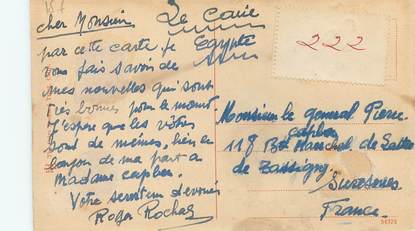 cher Monsieur,
Le Caire
Egypte
par cette carte je
vous fais savoir de
mes nouvelles qui sont
très bonnes pour le moment
J'espère que les vôtres
sont de mêmes, bien le
bonjour de ma part a
Madame caplon.
Votre serviteur dévoué
Roger Rochas
222
Monsieur le general Pierre
caplon
118 Bd Marechal de Lattre
de Tassigny.
Suresnes
France.